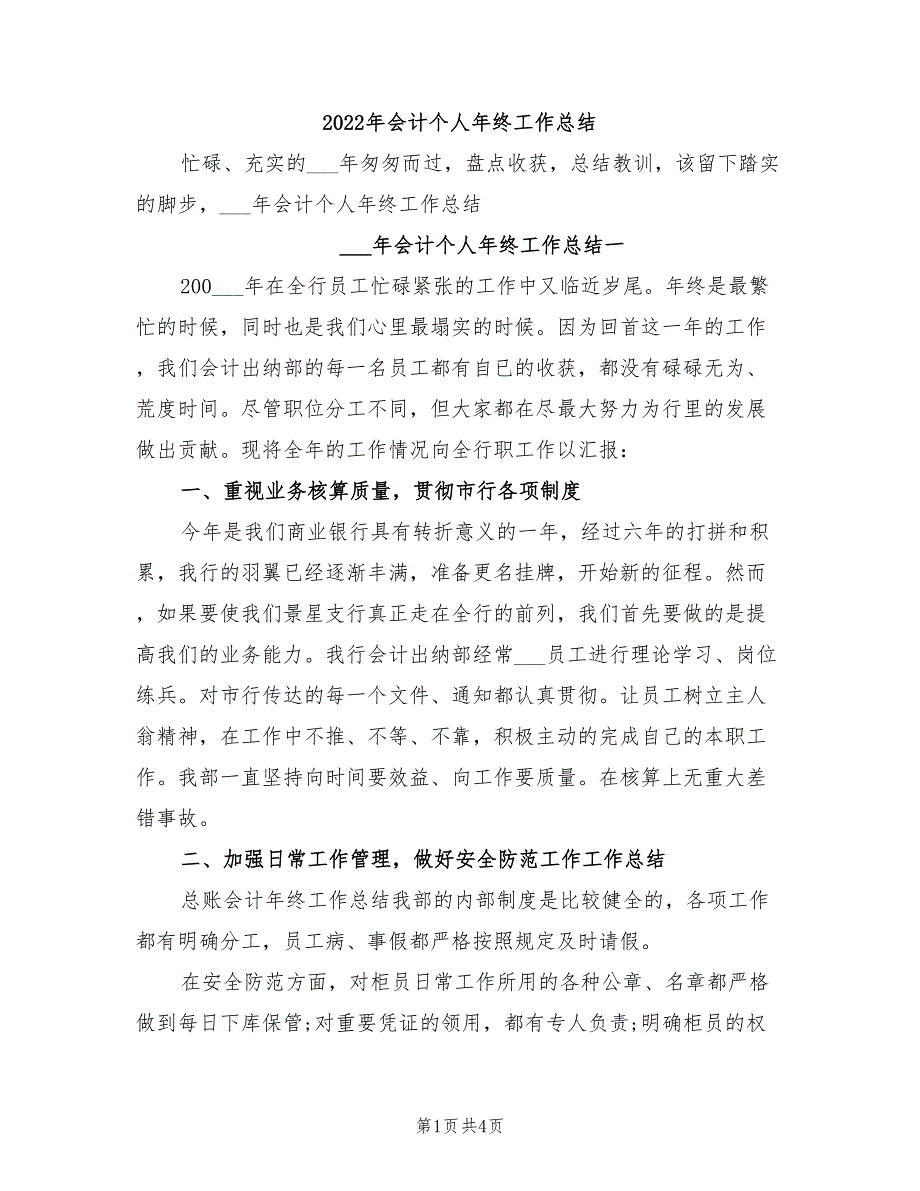 2022年会计个人年终工作总结
忙碌、充实的___年匆匆而过，盘点收获，总结教训，该留下踏实
的脚步，___年会计个人年终工作总结
___年会计个人年终工作总结一
200___年在全行员工忙碌紧张的工作中又临近岁尾。年终是最繁
忙的时候，同时也是我们心里最塌实的时候。因为回首这一年的工作
，我们会计出纳部的每一名员工都有自已的收获，都没有碌碌无为、
荒度时间。尽管职位分工不同，但大家都在尽最大努力为行里的发展
做出贡献。现将全年的工作情况向全行职工作以汇报：
一、重视业务核算质量，贯彻市行各项制度
今年是我们商业银行具有转折意义的一年，经过六年的打拼和积
累，我行的羽翼已经逐渐丰满，准备更名挂牌，开始新的征程。然而
，如果要使我们景星支行真正走在全行的前列，我们首先要做的是提
高我们的业务能力。我行会计出纳部经常___员工进行理论学习、岗位
练兵。对市行传达的每一个文件、通知都认真贯彻。让员工树立主人
翁精神，在工作中不推、不等、不靠，积极主动的完成自己的本职工
作。我部一直坚持向时间要效益、向工作要质量。在核算上无重大差
错事故。
二、加强日常工作管理，做好安全防范工作工作总结
总账会计年终工作总结我部的内部制度是比较健全的，各项工作
都有明确分工，员工病、事假都严格按照规定及时请假。
在安全防范方面，对柜员日常工作所用的各种公章、名章都严格
做到每日下库保管;对重要凭证的领用，都有专人负责;明确柜员的权
第1页共4页